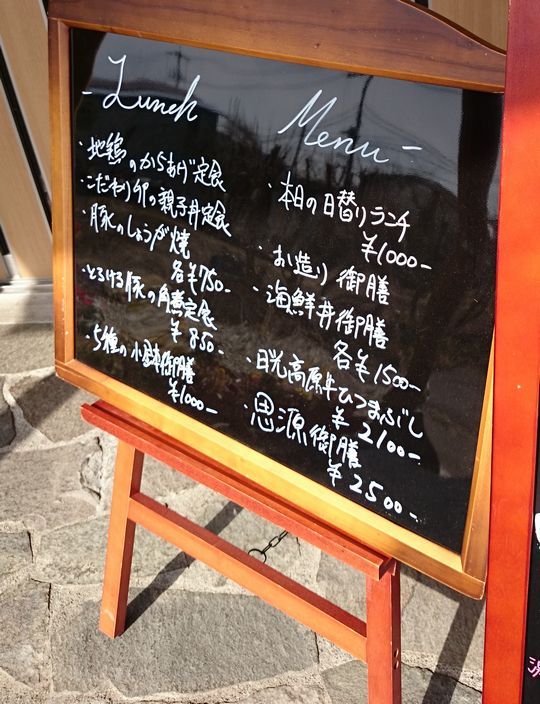 - Lunch Menu -
・地鶏のからあげ定食
・こだわり卵の親子丼定食
・豚のしょうが焼
各¥750-
・とろける豚の角煮定食
¥850-
・5種の小鉢御膳
¥1000-
・本日の日替りランチ
¥1000-
・お造り御膳
・海鮮丼御膳
各¥1500-
・日光高原牛ひつまぶし
¥2100-
・恩源御膳
¥2500-